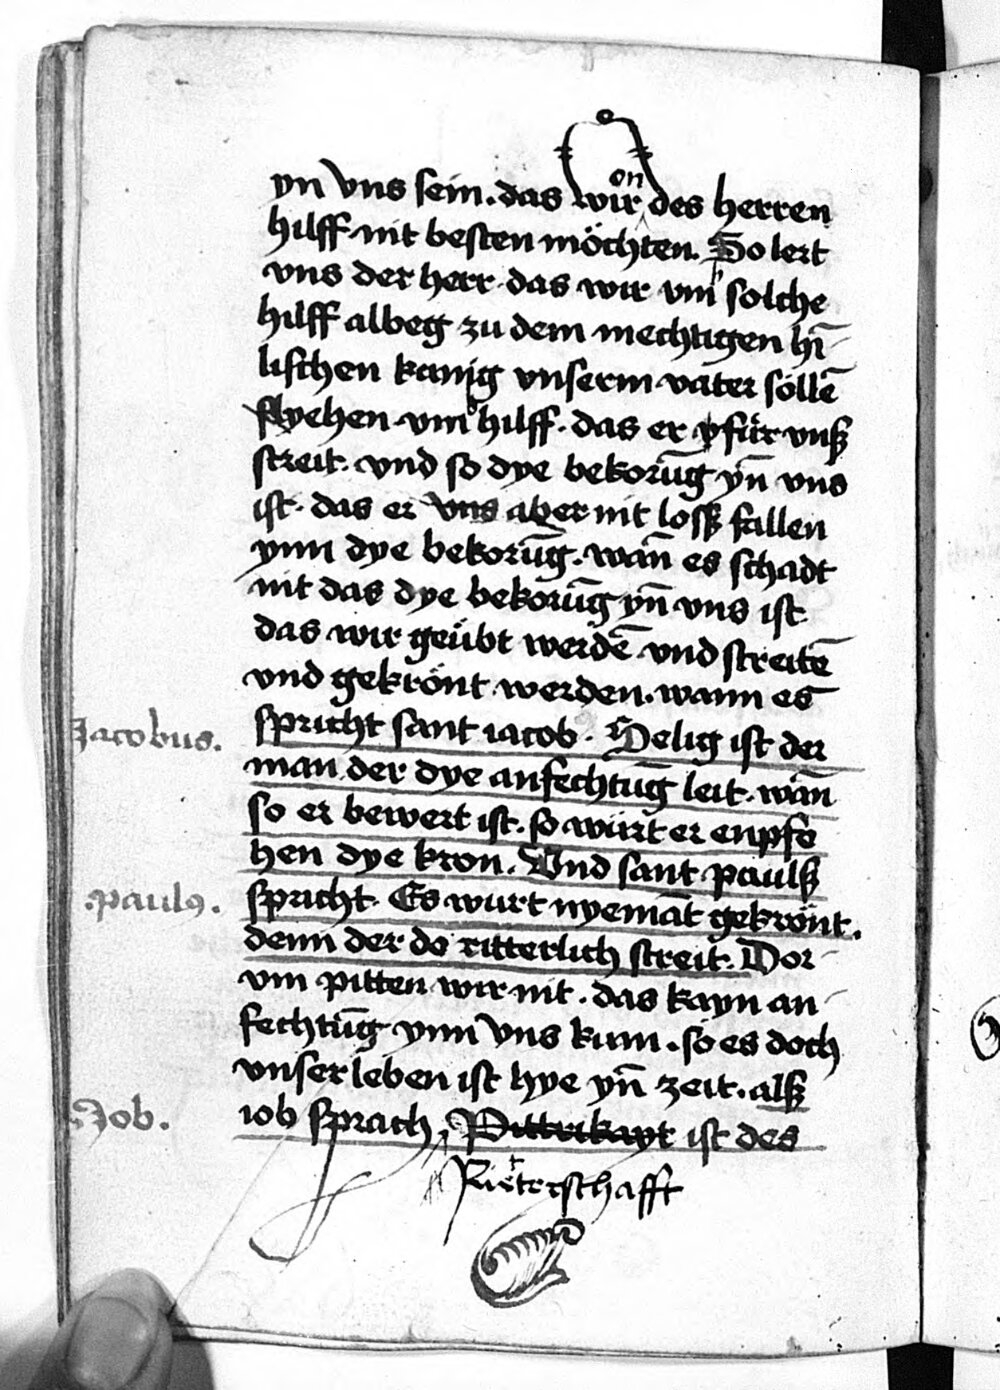 yn vns sein. das wir on des herren
hilff nit besten möchten. So lert
vns der herr. das wir vm solche
hilff albeg zu dem mechtigen hī-
lischen kunig vnserm vater söllē
flyehen vm hilff. das er für vnß
streit. vnd so dye bekorūg yn̄ vns
ist. das er vns aber nit losß fallen
ynn dye bekorūg. wān es schadt
nit das dye bekorūg yn̄ vns ist
das wir geübt werdē vnd streitē
vnd gekrönt werden. wann es
Jacobus.
spricht sant iacob. Selig ist der
man der dye anfechtūg leit. wān
so er bewert ist. so würt er enpfo
hen dye kron. Vnd sant paulß
.paulꝰ.
spricht. Es wurt nyemāt gekrönt.
denn der do ritterlich streit. Dor-
vm pitten wir nit. das kayn an-
fechtūg ynn vns kum. so es doch
vnser leben ist hye yn̄ zeit. alß
Job.
iob sprach, Rittrikayt ist des
Ritterschafft